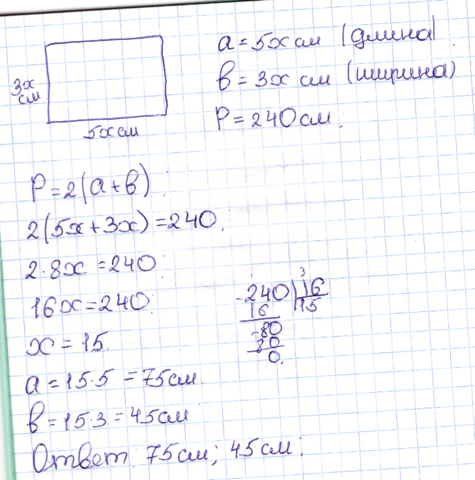 a = 5x см (длина)
3x см
b = 3x см (ширина)
5x см
P = 240 см.
P = 2(a+b)
2(5x+3x) = 240.
2·8x = 240
16x = 240.
x = 15.
240 16
16 15
80
80
0.
a = 15·5 = 75 см
b = 15·3 = 45 см
Ответ 75 см; 45 см.